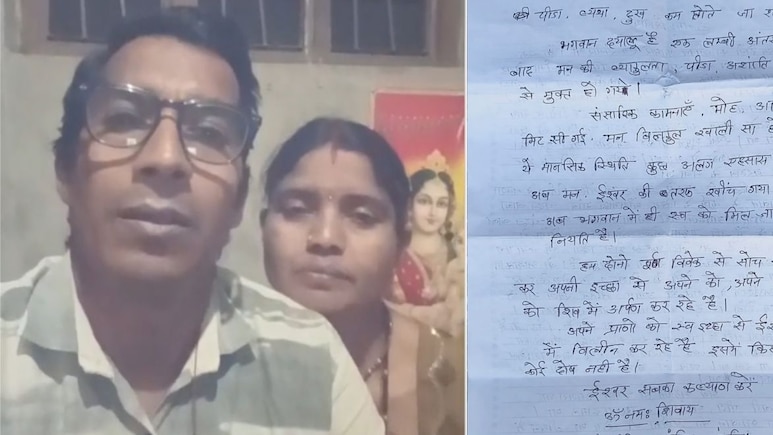 की पीडा, व्यथा, दुख कम होते जा
भगवान दयालू है एक लम्बी
बाद मन की व्याकुलता, पीडा, अशांति
से मुक्त हो गये।
संसारिक कामनाएँ, मोह,
मिट सी गई. मन बिलकुल खाली सा
ये मानसिक स्थिति कुछ अलग
अब मन ईश्वर की तरफ खींच गया
अब भगवान में ही सब को मिल
नियति है।
हम दोनो विवेक से सोच
कर अपनी इच्छा से अपने को, अपने
को शिव में अर्पण कर रहे है।
अपने प्राणो को स्व इच्छा से
में विलीन कर रहे है इसमें
कोई दोष नहीं है।
ईश्वर सबका कल्याण करें
ॐ नमः शिवाय